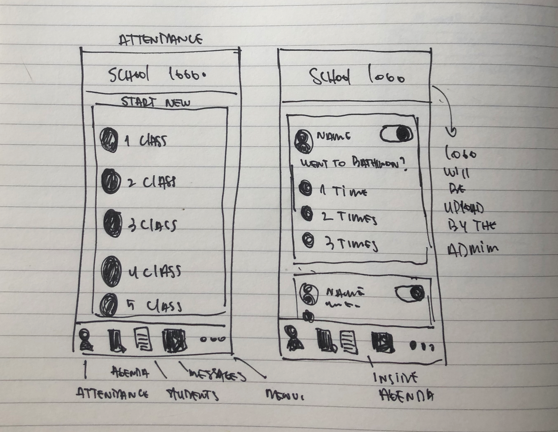 ATTENDANCE
SCHOOL LOGO.
START NEW
1 CLASS
2 CLASS
3 CLASS
4 CLASS
5 CLASS
AGENDA
MESSAGES
ATTENDANCE
STUDENTS
MENU
SCHOOL LOGO
NAME
WENT TO BATHROOM?
1 TIME
2 TIMES
3 TIMES
NAME
INSIDE
AGENDA
LOGO
WILL
BE
UPLOAD
BY THE
ADMIN